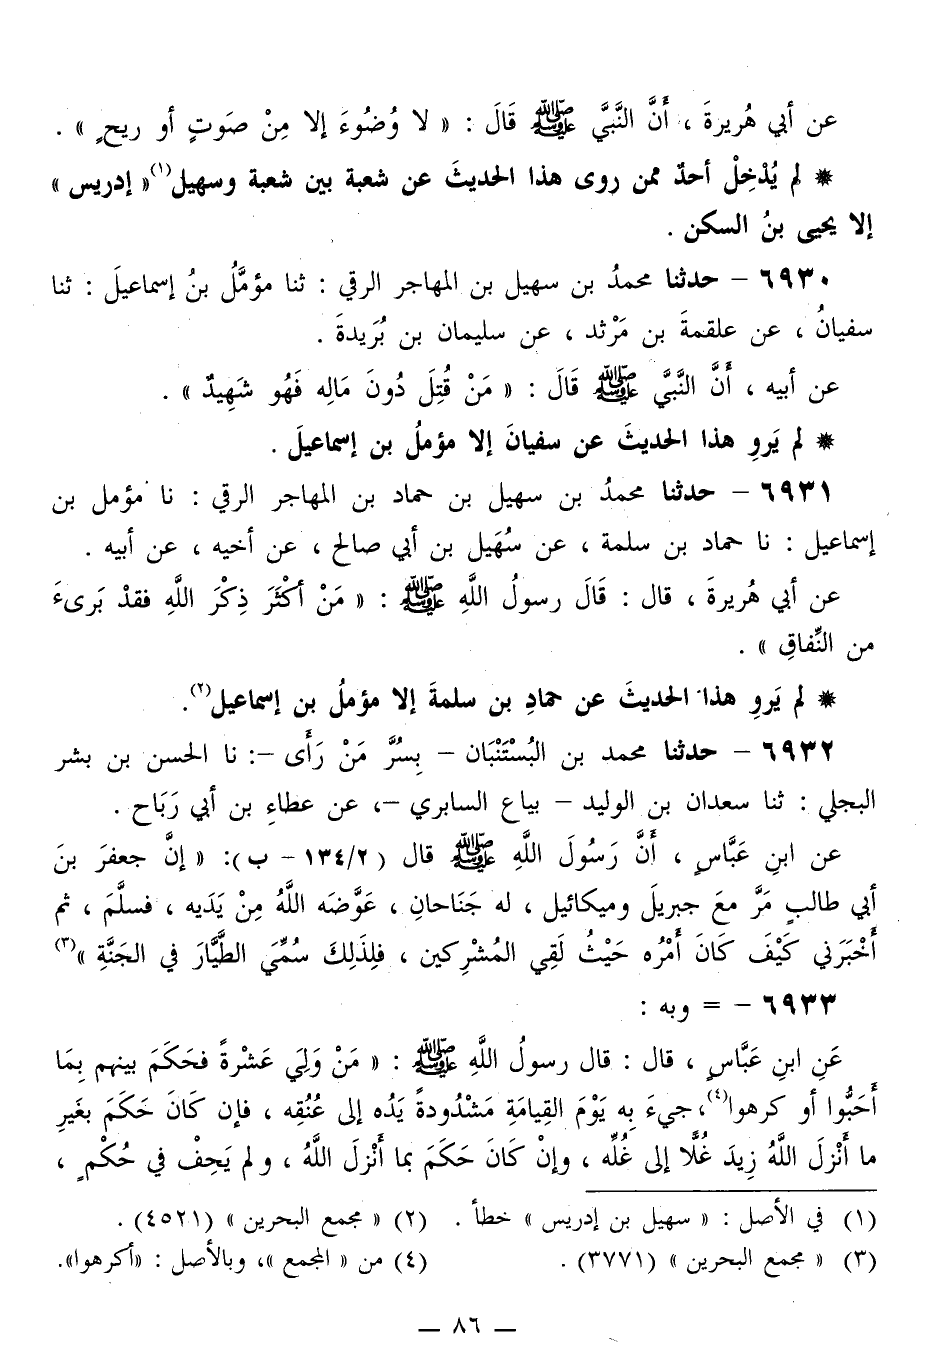 عن أبي هُريرةَ ، أَنَّ النَّبيَّ ﷺ قَالَ : « لا وُضُوءَ إلا مِنْ صَوَتٍ أو ريحٍ » .
* لم يُدْخِلْ أحدٌ ممن روى هذا الحديثَ عن شعبة بين شعبة وسهيل(١)« إدريس »
إلا يحيى بنُ السكن .
٦٩٣٠ – حدثنا محمدُ بن سهيل بن المهاجر الرقي : ثنا مؤمَّلُ بنُ إسماعيلَ : ثنا
سفيانُ ، عن علقمةَ بن مَرْثد ، عن سليمان بن بُرَيدةَ .
عن أبيه ، أَنَّ النَّبيَّ ﷺ قَالَ : « مَنْ قُتِلَ دُونَ مَالِه فَهُو شَهِيدٌ » .
* لم يَروِ هذا الحديثَ عن سفيانَ إلا مؤملُ بن إسماعيلَ .
٦٩٣١ – حدثنا محمدُ بن سهيل بن حماد بن المهاجر الرقي : نا مؤمل بن
إسماعيل : نا حماد بن سلمة ، عن سُهَيل بن أبي صالح ، عن أخيه ، عن أبيه .
عن أبي هُريرةَ ، قال : قَالَ رسولُ اللَّهِ ﷺ : « مَنْ أكْثَرَ ذِكْرَ اللَّهِ فقدْ بَرىءَ
من النِّفاقِ » .
* لم يَروِ هذا الحديثَ عن حمادِ بن سلمةَ إلا مؤملُ بن إسماعيل(٢).
٦٩٣٢ – حدثنا محمد بن البُسْتَنْبَان – بِسُرَّ مَنْ رَأَى –: نا الحسن بن بشر
البجلي : ثنا سعدان بن الوليد – بياع السابري –، عن عطاءِ بن أبي رَبَاح .
عن ابنِ عَبَّاسٍ ، أَنَّ رَسُولَ اللَّهِ ﷺ قال ( ١٣٤/٢ – ب ): « إنَّ جعفرَ بنَ
أبي طالبٍ مَرَّ معَ جبريلَ وميكائيل ، له جَنَاحانِ ، عَوَّضَه اللَّهُ مِنْ يَدَيه ، فسلَّمَ ، ثم
أَخْبَرَني كَيْفَ كَانَ أَمْرُه حَيْثُ لَقِي المُشْرِكين ، فلِذَلِكَ سُمِّيَ الطَّيَّارَ في الجَنَّةِ »(٣)
٦٩٣٣ – = وبه :
عَنِ ابنِ عَبَّاسٍ ، قال : قال رسولُ اللَّهِ ﷺ : « مَنْ وَلِيَ عَشْرةً فحَكَمَ بينهم بِمَا
أَحَبُّوا أو كرهوا(٤)، جيءَ بِه يَوْمَ القِيامَةِ مَشْدُودةً يَدُه إلى عُنُقِه ، فإن كَانَ حَكَمَ بغَيرِ
ما أَنْزلَ اللَّهُ زِيدَ غُلًّا إلى غُلِّه ، وإنْ كَانَ حَكَمَ بما أَنْزلَ اللَّهُ ، ولم يَحِفْ في حُكْمٍ ،
(١) في الأصل : « سهيل بن إدريس » خطأ . (٢) « مجمع البحرين » (٤٥٢١) .
(٣) « مجمع البحرين » (٣٧٧١) . (٤) من « المجمع »، وبالأصل : «أكرهوا».
— ٨٦ —